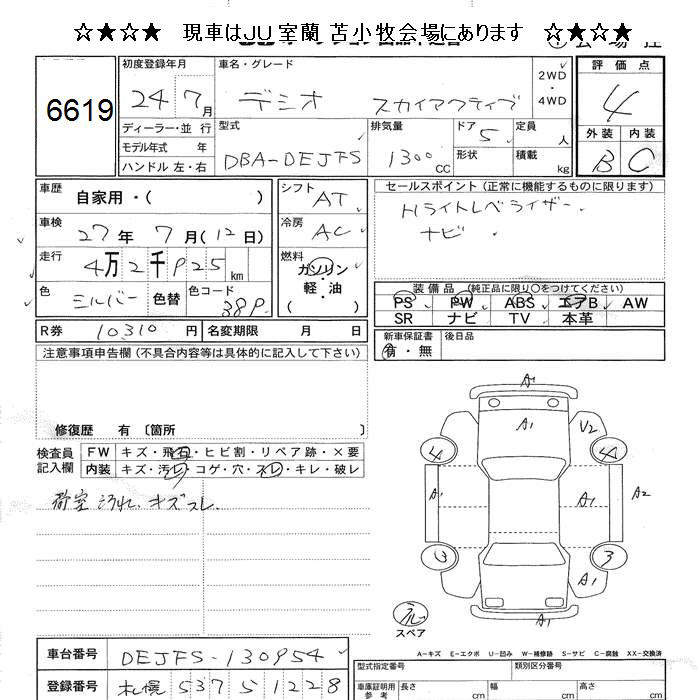 ☆★☆★　現車はＪＵ室蘭 苫小牧会場にあります　☆★☆★
6619
初度登録年月
24 7月
車名・グレード
デミオ スカイアクティブ
2WD
・
4WD
評価点
4
外装 内装
B C
ディーラー・並行
モデル年式 年
ハンドル 左・右
型式
DBA-DEJFS
排気量
1300cc
ドア 5
形状
定員 人
積載 kg
車歴 自家用・( )
車検 27年 7月(12日)
走行 4万2千925km
色 シルバー 色替 カラーコード 38P
シフト AT
冷房 AC
燃料 ガソリン
軽・油
( )
セールスポイント (正常に機能するものに限ります)
Hライトレベライザー
ナビ
装備品 (純正品に限り○をつけてください)
PS PW ABS エアB AW
SR ナビ TV 本革
R券 10310円 名変期限 月 日
新車保証書
有・無
後日品
注意事項申告欄 (不具合内容等は具体的に記入して下さい)
修復歴 有 〔箇所 〕
検査員
記入欄
FW キズ・飛石・ヒビ割・リペア跡・×要
内装 キズ・汚レ・コゲ・穴・スレ・キレ・破レ
荷室 汚れ、キズスレ
A1
V2
4 4
A1 A1 A2
3 3
A1 A1
スペア
A-キズ E-エクボ U-凹み W-補修跡 S-サビ C-腐蝕 XX-交換済
車台番号 DEJFS-130954
登録番号 札幌 537 5 1228
型式指定番号 類別区分番号
車庫証明用
参考
長さ cm 幅 cm 高さ cm